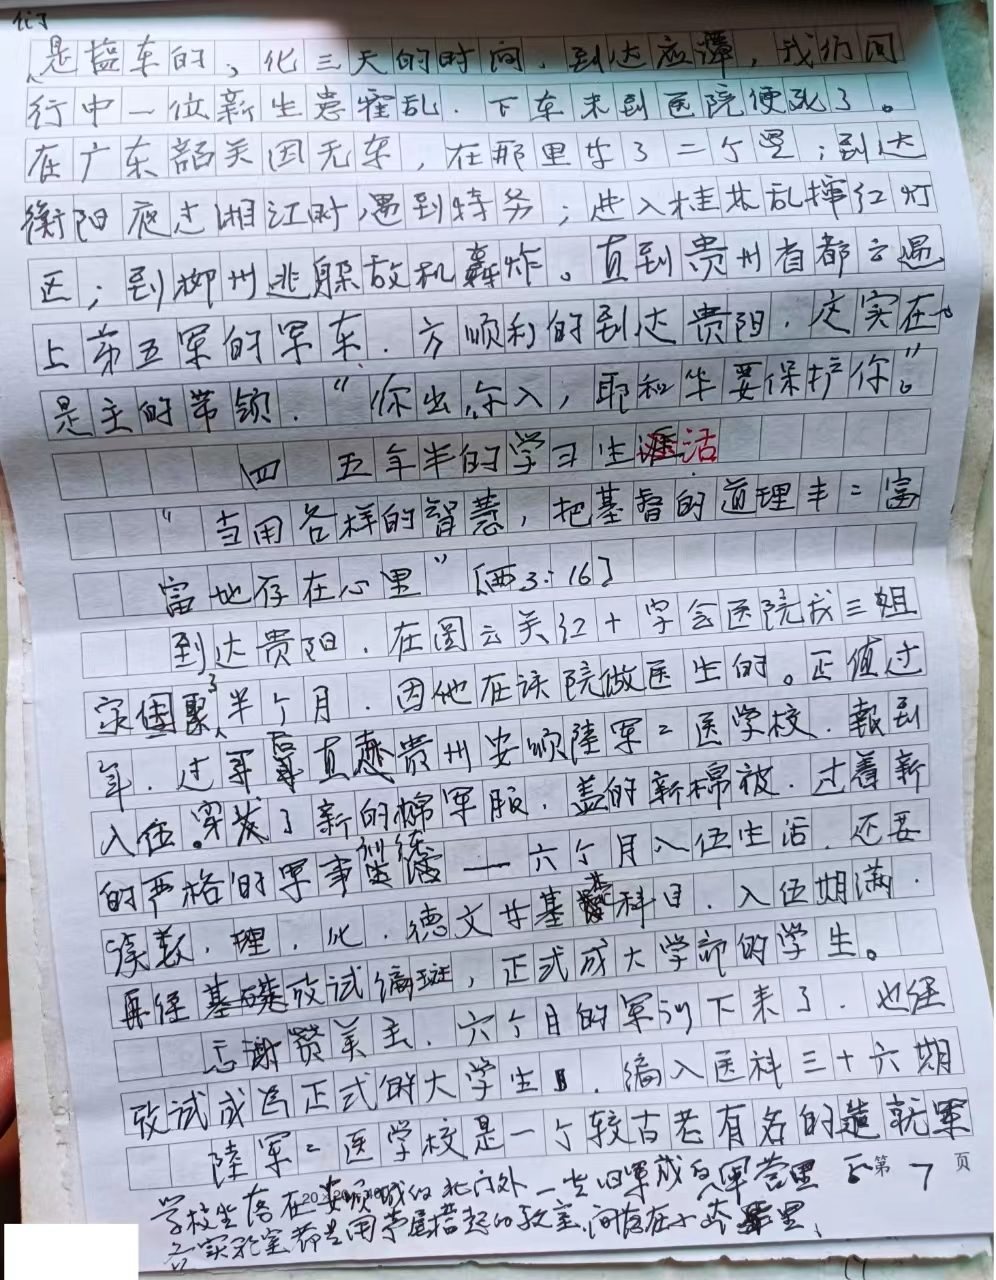 是盐车的，化三天的时间，到达应潭，我们同
行中一位新生患霍乱．下车未到医院便死了。
在广东韶关因无车，在那里等了二个星；到达
衡阳夜过湘江时遇到特务；进入桂林乱撞红灯
区；到柳州逃躲敌机轰炸。直到贵州省都云遇
上第五军的军车．方顺利的到达贵阳．这实在
是主的带领．“你出你入，耶和华要保护你。”
四 五年半的学习生活
“当用各样的智慧，把基督的道理丰=富
富地存在心里”〔西3：16〕
到达贵阳．在图云关红十字会医院我三姐
家团聚了半个月．因他在该院做医生的。正值过
年．过年后直赴贵州安顺陸军=医学校．報到
入伍。穿发了新的棉军服．盖的新棉被．过着新
的严格的军事训练——六个月入伍生活．还要
读数．理．化．德文等基础科目．入伍期满．
再经基础攷试编班，正式成大学部的学生。
感谢赞美主．六个月的军训下来了．也经
攷试成为正式的大学生．编入医科三十六期
陸军=医学校是一个较古老有名的造就军
学校坐落在安顺城的北门外一些旧军阀的军营里
各实验室都是用茅屋搭起的教室
第 7 页